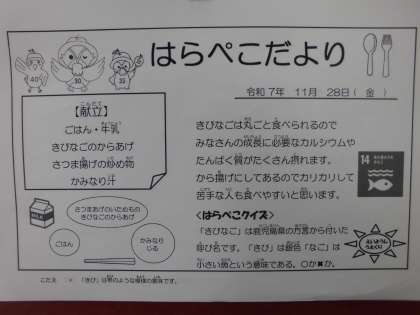 はらぺこだより
40
30
35
令和7年 11月 28日( 金 )
【献立】
ごはん・牛乳
きびなごのからあげ
さつま揚げの炒め物
かみなり汁
きびなごは丸ごと食べられるので
みなさんの成長に必要なカルシウムや
たんぱく質がたくさん摂れます。
から揚げにしてあるのでカリカリして
苦手な人も食べやすいと思います。
14
さつまあげのいためもの
きびなごのからあげ
ごはん
かみなり
じる
<はらぺこクイズ>
「きびなご」は鹿児島県の方言から付いた
呼び名です。「きび」は銀色「なご」は
小さい魚という意味である。〇か✖か。
こたえ : × 「きび」は帯のような模様の意味です。